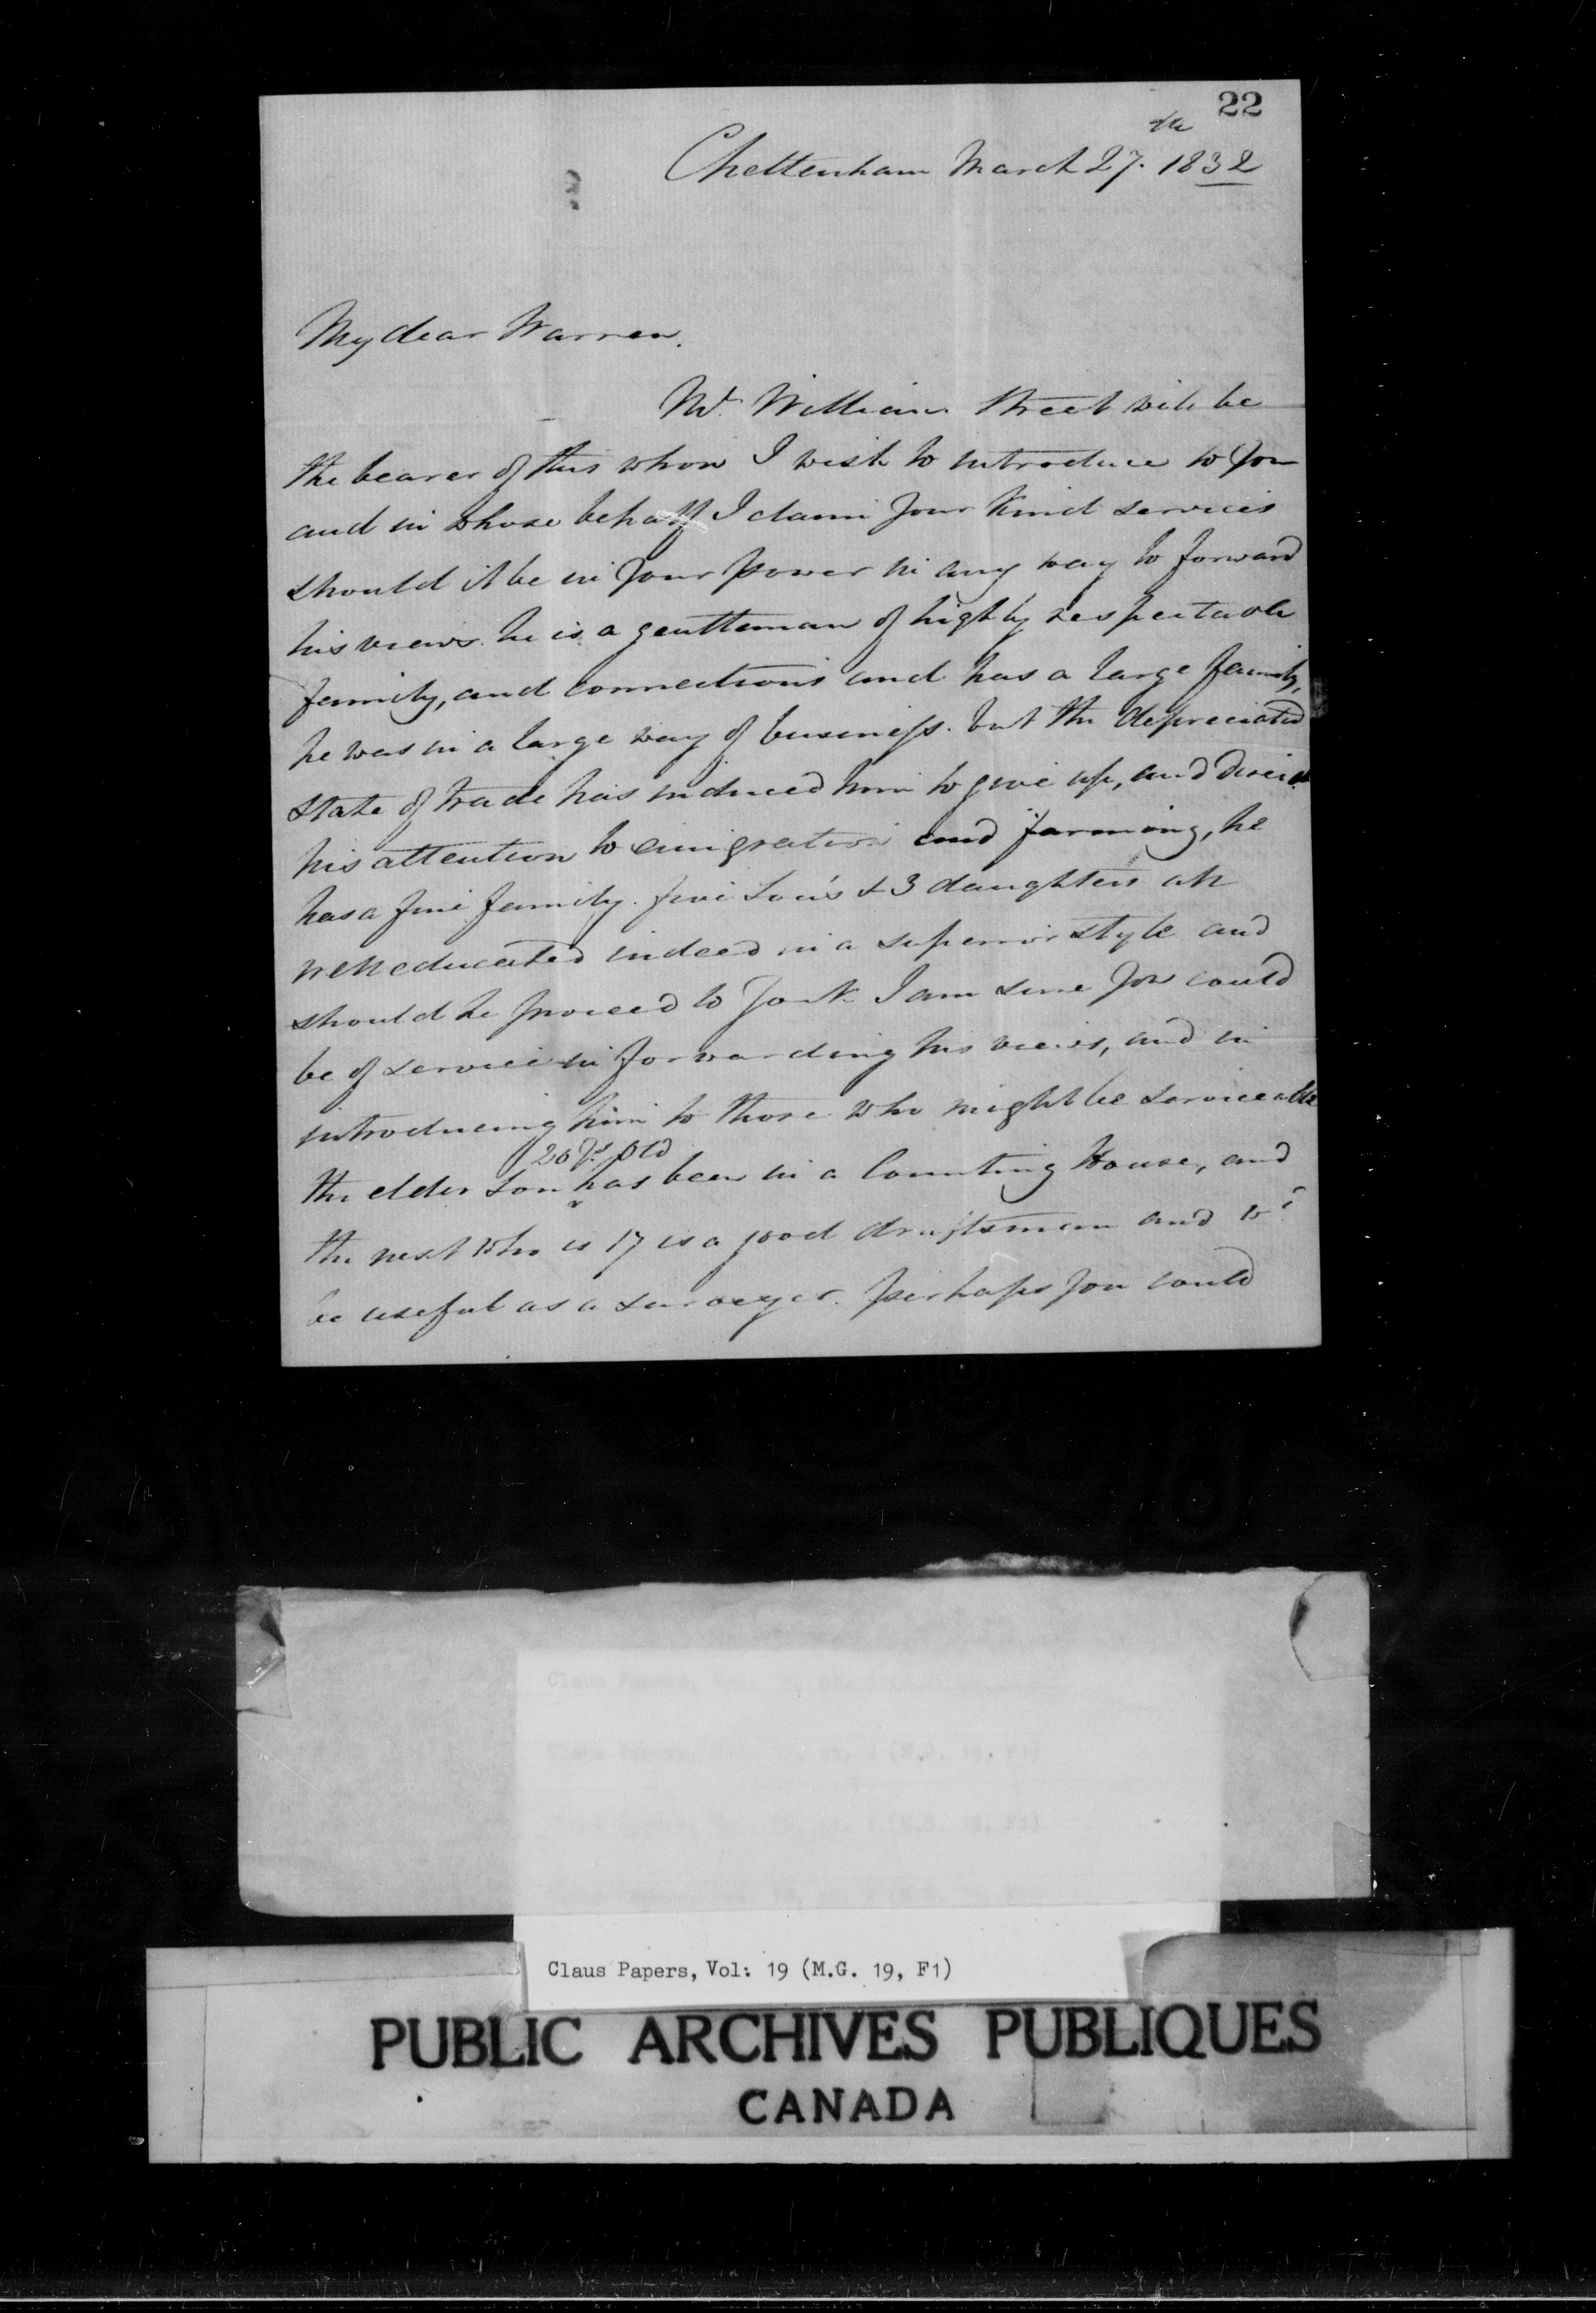 22
Cheltenham March 27th 1832
My dear Warren.
Mr. William Street will be
the bearer of this whom I wish to introduce to you
and in whose behalf I claim your kind services
should it be in your power in any way to forward
his views. he is a gentleman of highly respectable
family, and connections and has a large family,
he was in a large way of business. but the depreciated
state of trade has induced him to give up, and direct
his attention to emigration and farming, he
has a fine family. five Sons & 3 daughters all
well educated indeed in a superior style and
should he proceed to York I am sure you could
be of service in forwarding his views, and in
introducing him to those who might be serviceable
20 yrs. old
the elder Son has been in a Counting House, and
the next who is 17 is a good draftsman and wd
be useful as a surveyor. perhaps you could
Claus Papers, Vol: 19 (M.G. 19, F1)
PUBLIC ARCHIVES PUBLIQUES
CANADA